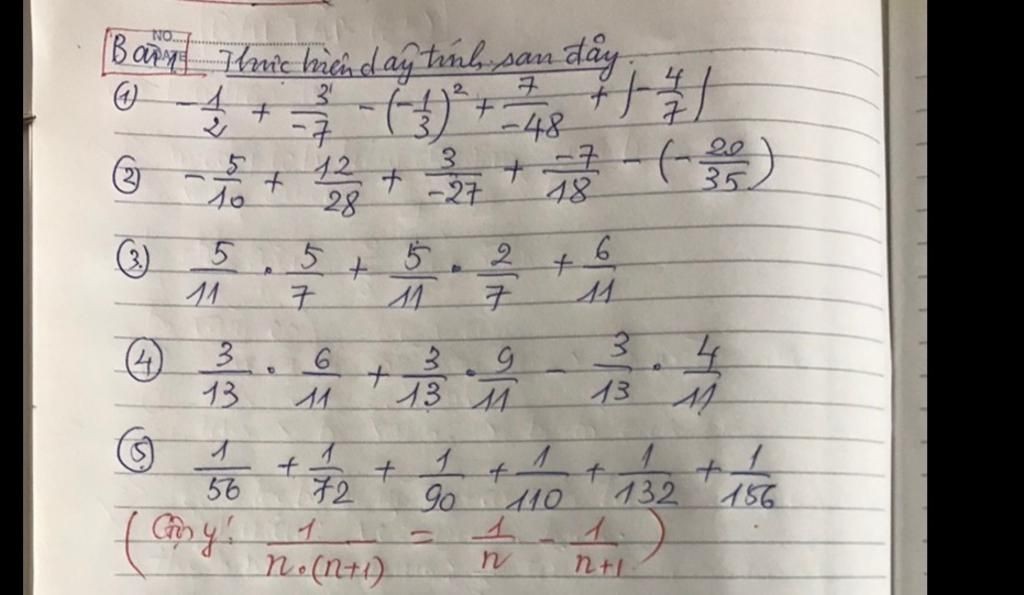 NO.
Bài 1 Thực hiện dãy tính sau đây.
① -1/2 + 3/-7 - (-1/3)² + 7/-48 + |-4/7|
② -5/10 + 12/28 + 3/-27 + -7/18 - (-20/35)
③ 5/11 . 5/7 + 5/11 . 2/7 + 6/11
④ 3/13 . 6/11 + 3/13 . 9/11 - 3/13 . 4/11
⑤ 1/56 + 1/72 + 1/90 + 1/110 + 1/132 + 1/156
( ý: 1/n.(n+1) = 1/n - 1/n+1 )